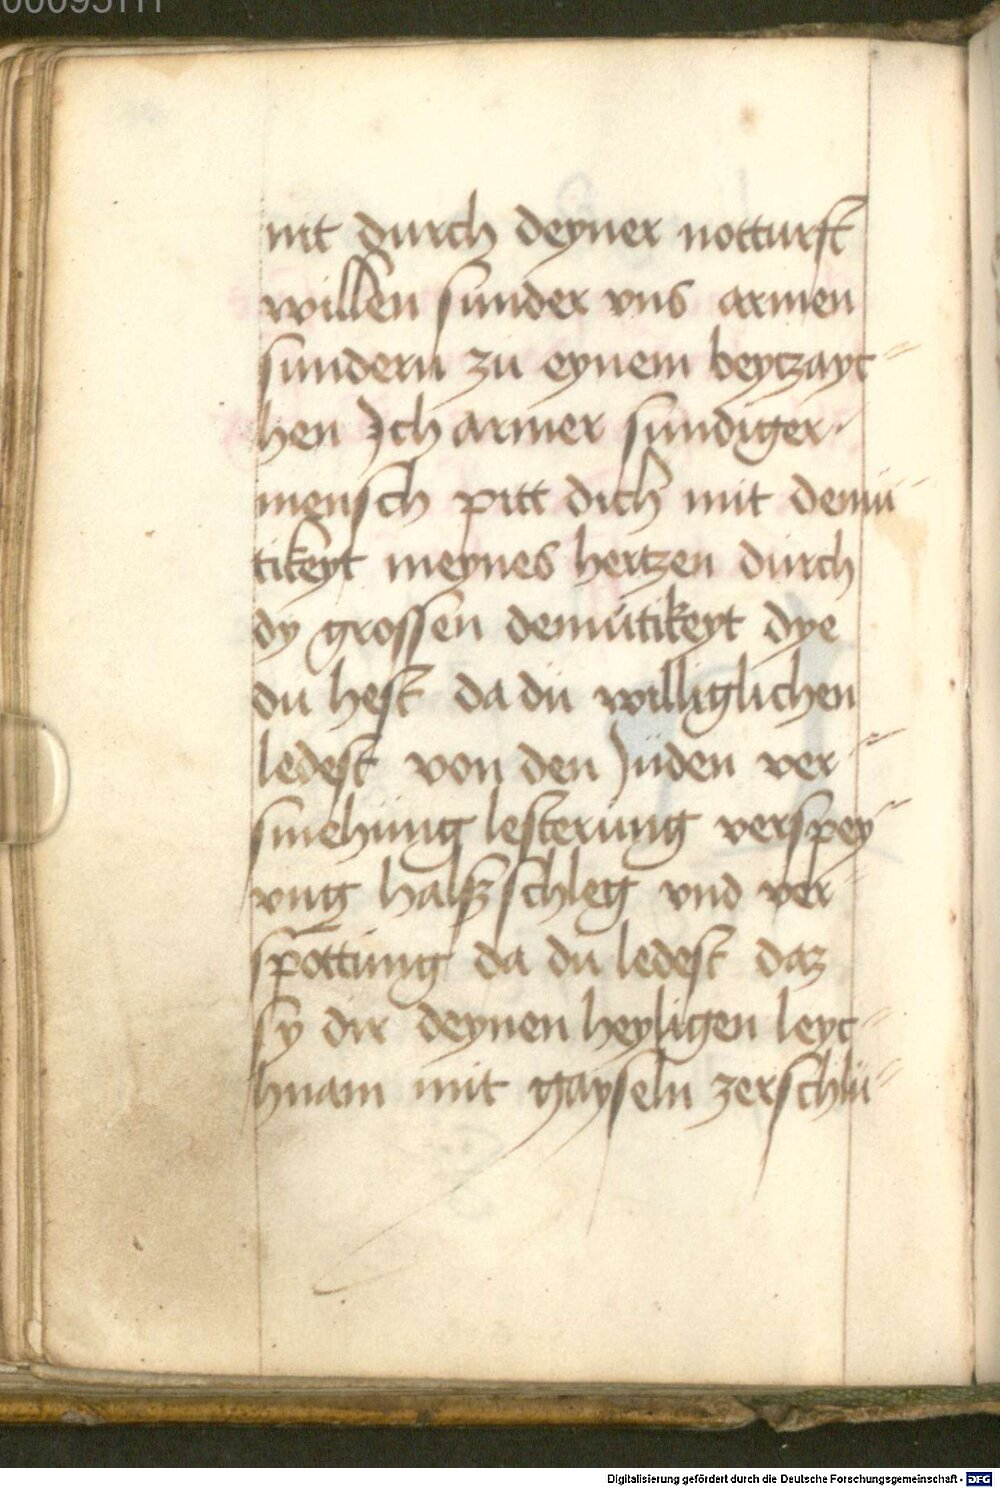 nit durch deyner notturft
willen sunder vns armen
sundern zu eynem beyczayc-
hen Ich armer sundiger
mensch pitt dich mit demu-
tikeyt meynes hertzen durch
dy grossen demutikeyt dye
du hest da du williglichen
ledest von den Juden ver-
smehung lesterung verspey-
vng halsschleg vnd ver-
spottung da du ledest daz
sy dir deynen heyligen leyc-
hnam mit gayseln zerschlu-
Digitalisierung gefördert durch die Deutsche Forschungsgemeinschaft - DFG